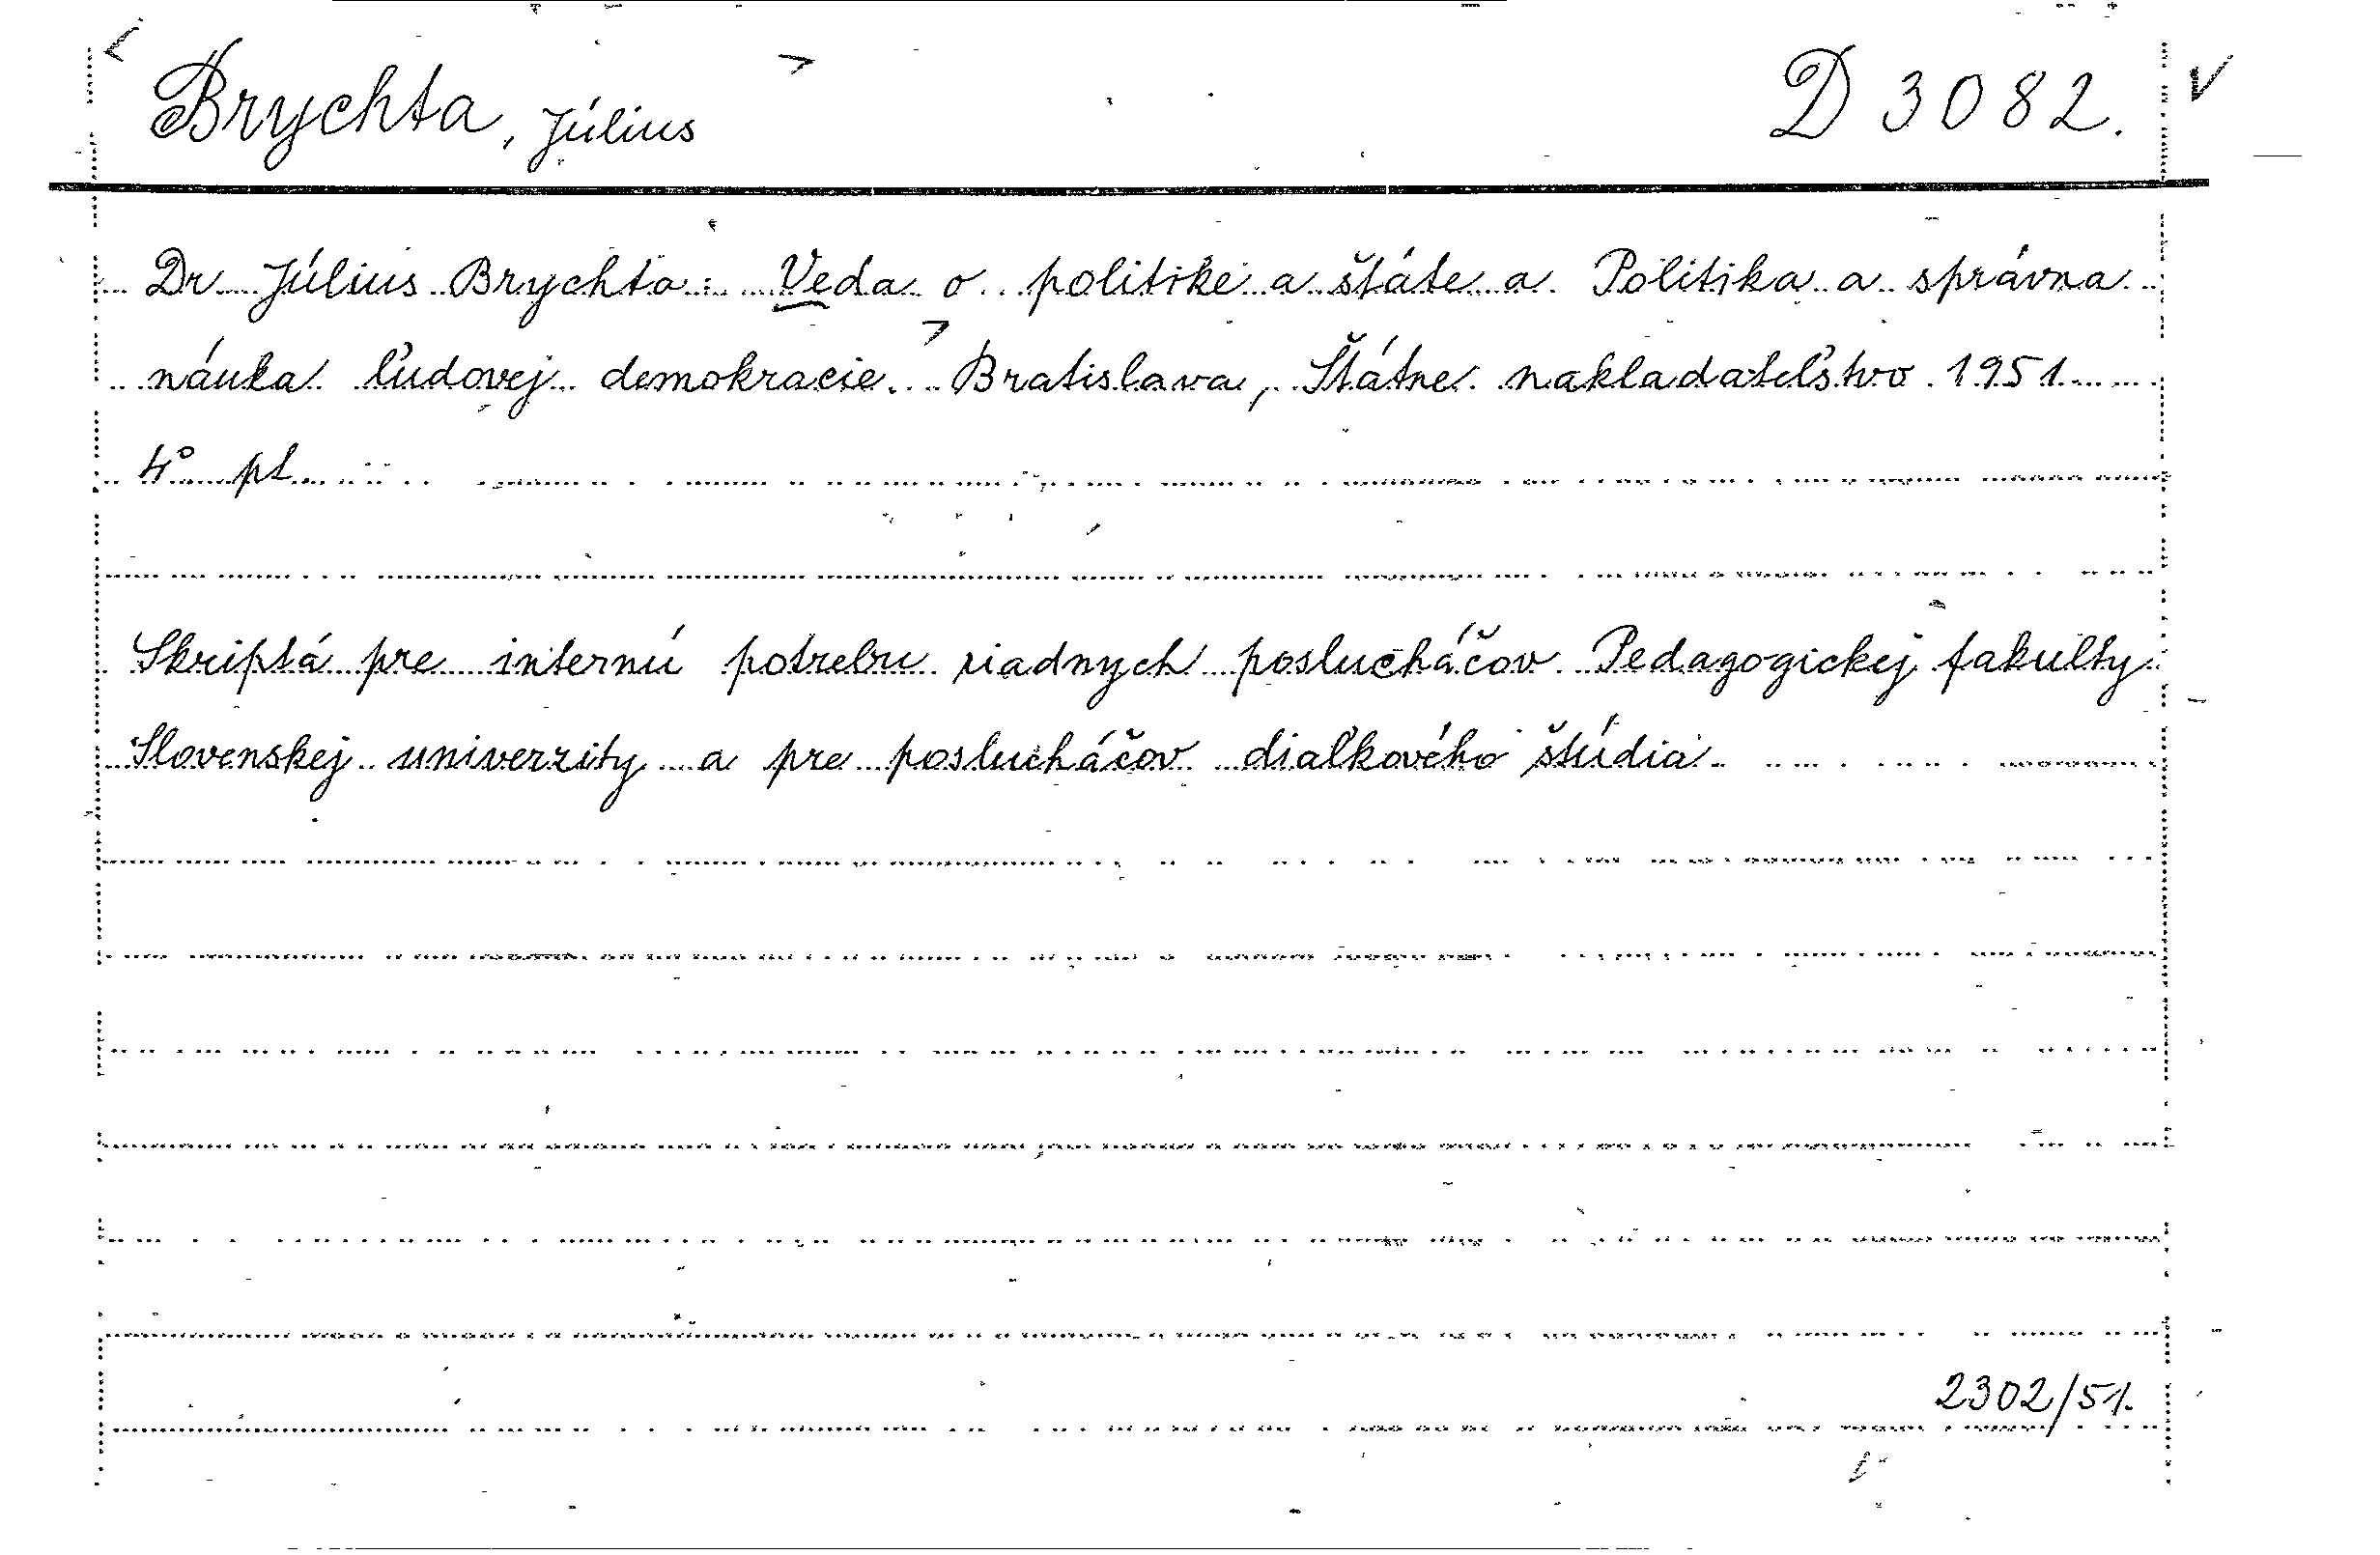 Brychta, Július D 3082.
Dr Július Brychta: Veda o politike a štáte a Politika a správna
náuka ľudovej demokracie. Bratislava, Štátne nakladateľstvo 1951
4° pl
Skriptá pre internú potrebu riadnych poslucháčov Pedagogickej fakulty
Slovenskej univerzity a pre poslucháčov diaľkového štúdia
2302/51.